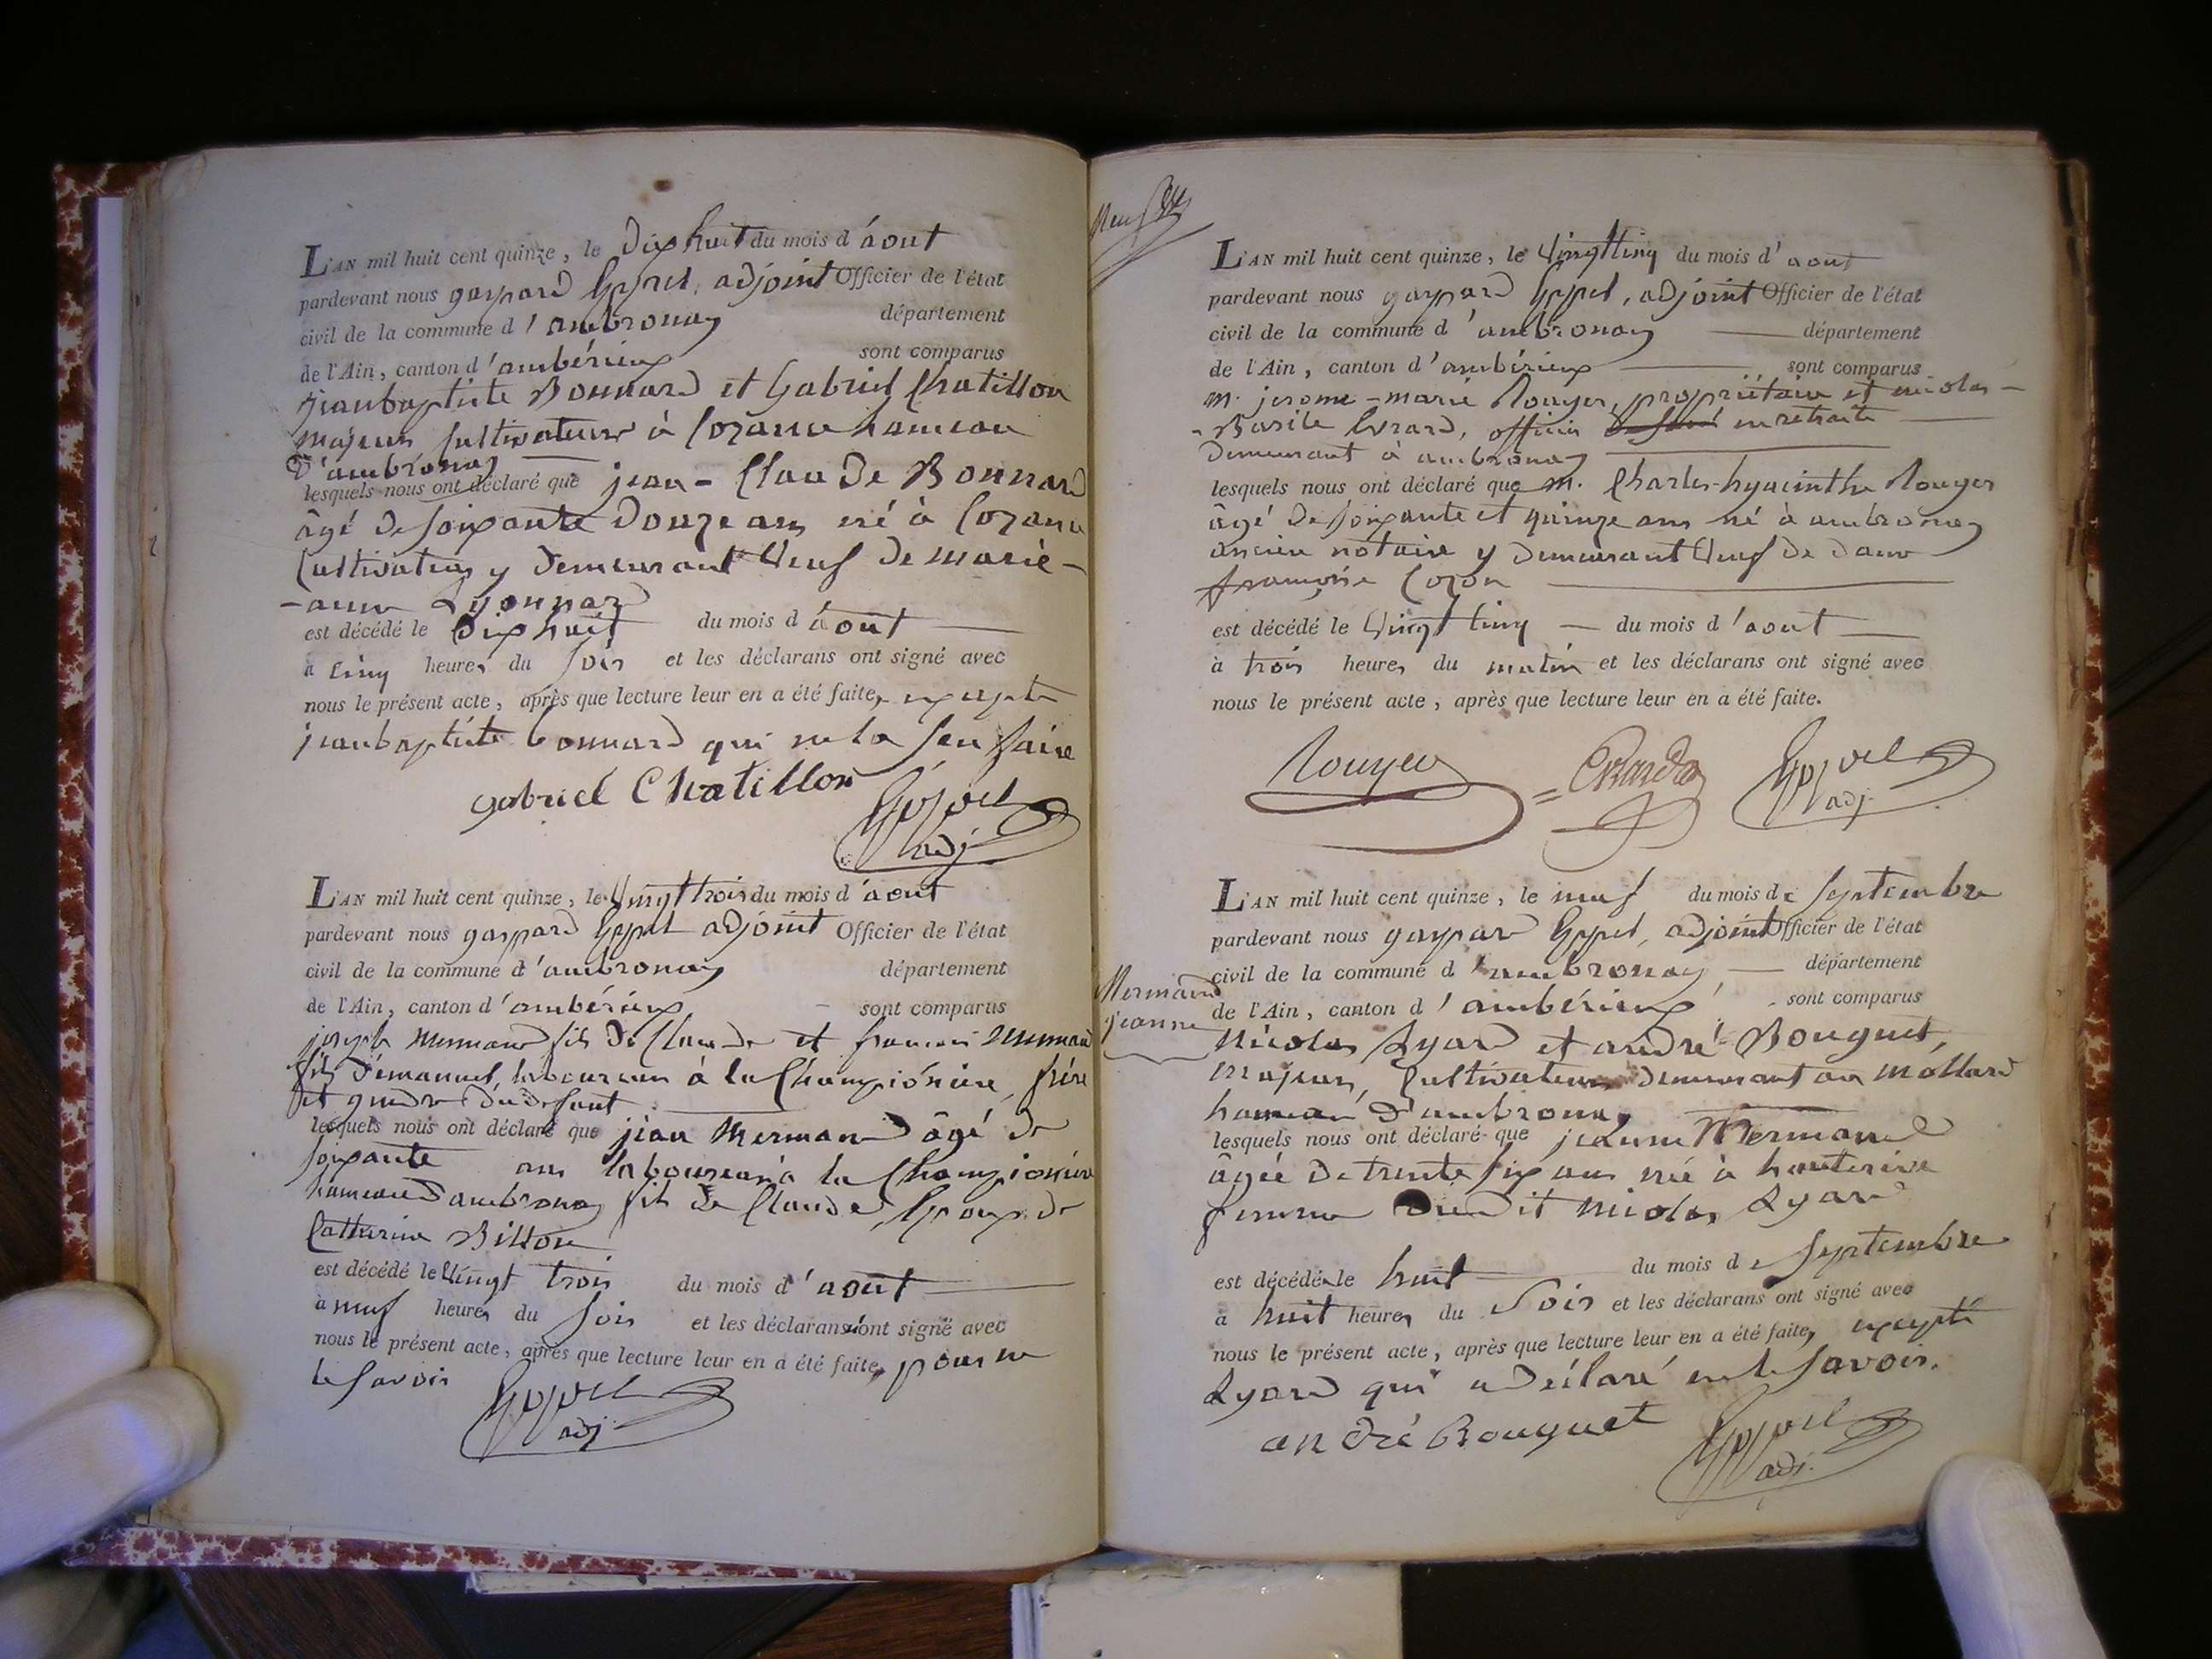 L'AN mil huit cent quinze, le dixhuit du mois d'aout
pardevant nous gaspard Goppet, adjoint Officier de l'état
civil de la commune d'ambronay département
de l'Ain, canton d'ambérieux sont comparus
jeanbaptiste Bonnard et Gabriel Chatillon
majeurs Cultivateurs à Cozance hameau
d'ambronay
lesquels nous ont déclaré que jean-Claude Bonnard
âgé de soixante douze ans né à Cozance
Cultivateur y demeurant Veuf de marie-
-anne Lyonnard
est décédé le dixhuit du mois d'aout
à cinq heures du soir et les déclarans ont signé avec
nous le présent acte, après que lecture leur en a été faite, excepté
jeanbaptiste bonnard qui ne la seu faire
gabriel Chatillon
adj
L'AN mil huit cent quinze, le Vingt trois du mois d'aout
pardevant nous gaspard Goppet adjoint Officier de l'état
civil de la commune d'ambronay département
de l'Ain, canton d'ambérieux sont comparus
joseph mermand fils de Claude et francois mermand
fils d'émanuel, laboureurs à la Championière, frère
et gendre du defunt
lesquels nous ont déclaré que jean Mermand âgé de
soixante ans laboureur à la Championière
hameau d'ambronay fils de Claude, Epoux de
Catherine Billon
est décédé le Vingt trois du mois d'aout
à neuf heures du soir et les déclarans n'ont signé avec
nous le présent acte, après que lecture leur en a été faite, pour ne
le savoir
adj
L'AN mil huit cent quinze, le Vingt cinq du mois d'aout
pardevant nous gaspard Goppet, adjoint Officier de l'état
civil de la commune d'ambronay département
de l'Ain, canton d'ambérieux sont comparus
m. jerome-marie Rouyer, propriétaire et nicolas-
-Basile Evrard, officier en retraite
demeurant à ambronay
lesquels nous ont déclaré que m. Charles-hyacinthe Rouyer
âgé de soixante et quinze ans né à ambronay
ancien notaire y demeurant Veuf de dame
françoise Cozon
est décédé le Vingt cinq du mois d'aout
à trois heures du matin et les déclarans ont signé avec
nous le présent acte, après que lecture leur en a été faite.
Rouyer Evrard
adj.
Mermand
jeanne
L'AN mil huit cent quinze, le neuf du mois de septembre
pardevant nous gaspard Goppet, adjoint Officier de l'état
civil de la commune d'ambronay département
de l'Ain, canton d'ambérieux sont comparus
Nicolas Lyard et andré Bouguet,
majeurs, Cultivateurs demeurant au mollard
hameau d'ambronay
lesquels nous ont déclaré que jeanne Mermand
âgée de trente six ans née à hauterive
femme dudit Nicolas Lyard
est décédée le huit du mois de septembre
à huit heures du soir et les déclarans ont signé avec
nous le présent acte, après que lecture leur en a été faite, excepté
Lyard qui a déclaré ne le savoir.
andré Bouguet
adj.